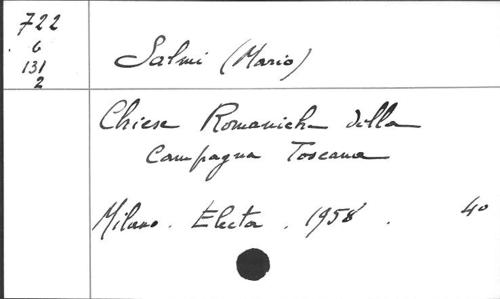 722
6
131
2
Salmi (Mario)
Chiese Romaniche della
Campagna Toscana
Milano. Electa. 1958. 40